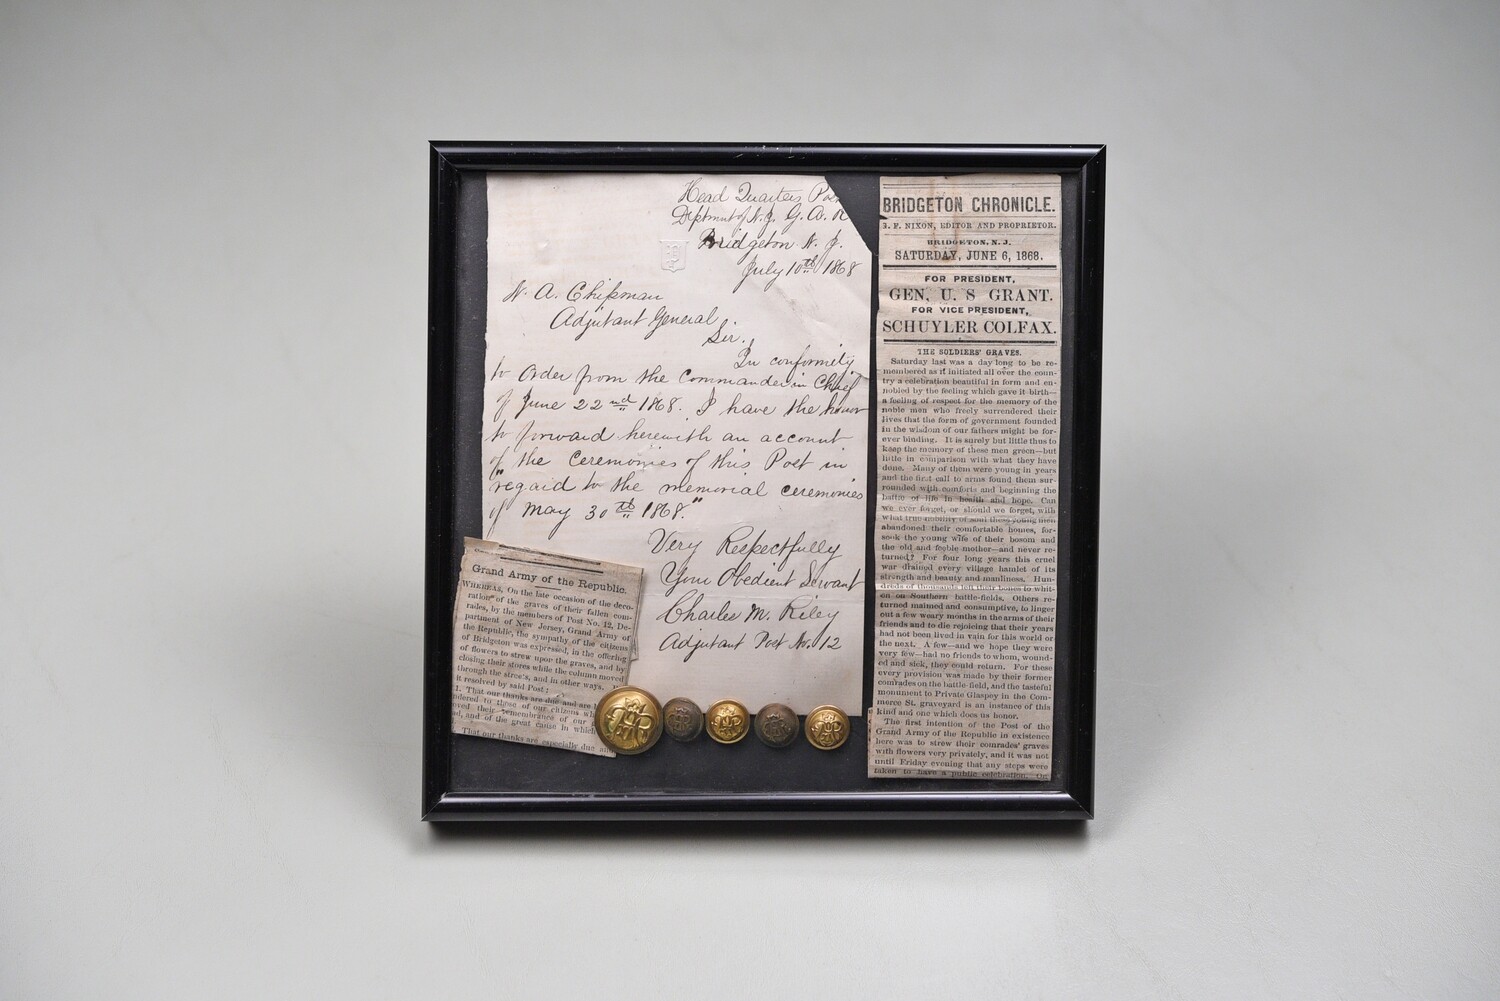 Head Quarters Pos
Deptment of N. J. G. A. R
Bridgeton N. J.
July 10th 1868
N. A. Chipman
Adjutant General
Sir.
In conformity
to Order from the Commander in Chief
of June 22nd 1868. I have the honor
to forward herewith an account
of the Ceremonies of this Post in
"regard to the memorial ceremonies
of May 30th 1868."
Very Respectfully
Your Obedient Servant
Charles M. Riley
Adjutant Post No. 12
Grand Army of the Republic.
WHEREAS, On the late occasion of the deco-
ration of the graves of their fallen com-
rades, by the members of Post No. 12, De-
partment of New Jersey, Grand Army of
the Republic, the sympathy of the citizens
of Bridgeton was expressed, in the offering
of flowers to strew upon the graves, and by
closing their stores while the column moved
through the streets, and in other ways.
it resolved by said Post:
1. That our thanks are due and are
dered to those of our citizens wh
oved their remembrance of our
d, and of the great cause in which
That our thanks are especially due an
BRIDGETON CHRONICLE.
B. F. NIXON, EDITOR AND PROPRIETOR.
BRIDGETON, N. J.
SATURDAY, JUNE 6, 1868.
FOR PRESIDENT,
GEN. U. S GRANT.
FOR VICE PRESIDENT,
SCHUYLER COLFAX.
THE SOLDIERS' GRAVES.
Saturday last was a day long to be re-
membered as it initiated all over the coun-
try a celebration beautiful in form and en-
nobled by the feeling which gave it birth—
a feeling of respect for the memory of the
noble men who freely surrendered their
lives that the form of government founded
in the wisdom of our fathers might be for-
ever binding. It is surely but little thus to
keep the memory of these men green—but
little in comparison with what they have
done. Many of them were young in years
and the first call to arms found them sur-
rounded with comforts and beginning the
battle of life in health and hope. Can
we ever forget, or should we forget, with
what true nobility of soul these young men
abandoned their comfortable homes, for-
sook the young wife of their bosom and
the old and feeble mother—and never re-
turned? For four long years this cruel
war drained every village hamlet of its
strength and beauty and manliness. Hun-
dreds of thousands left their bones to whit-
en on Southern battle-fields. Others re-
turned maimed and consumptive, to linger
out a few weary months in the arms of their
friends and to die rejoicing that their years
had not been lived in vain for this world or
the next. A few—and we hope they were
very few—had no friends to whom, wound-
ed and sick, they could return. For these
every provision was made by their former
comrades on the battle-field, and the tasteful
monument to Private Glaspey in the Com-
merce St. graveyard is an instance of this
kind and one which does us honor.
The first intention of the Post of the
Grand Army of the Republic in existence
here was to strew their comrades' graves
with flowers very privately, and it was not
until Friday evening that any steps were
taken to have a public celebration. On